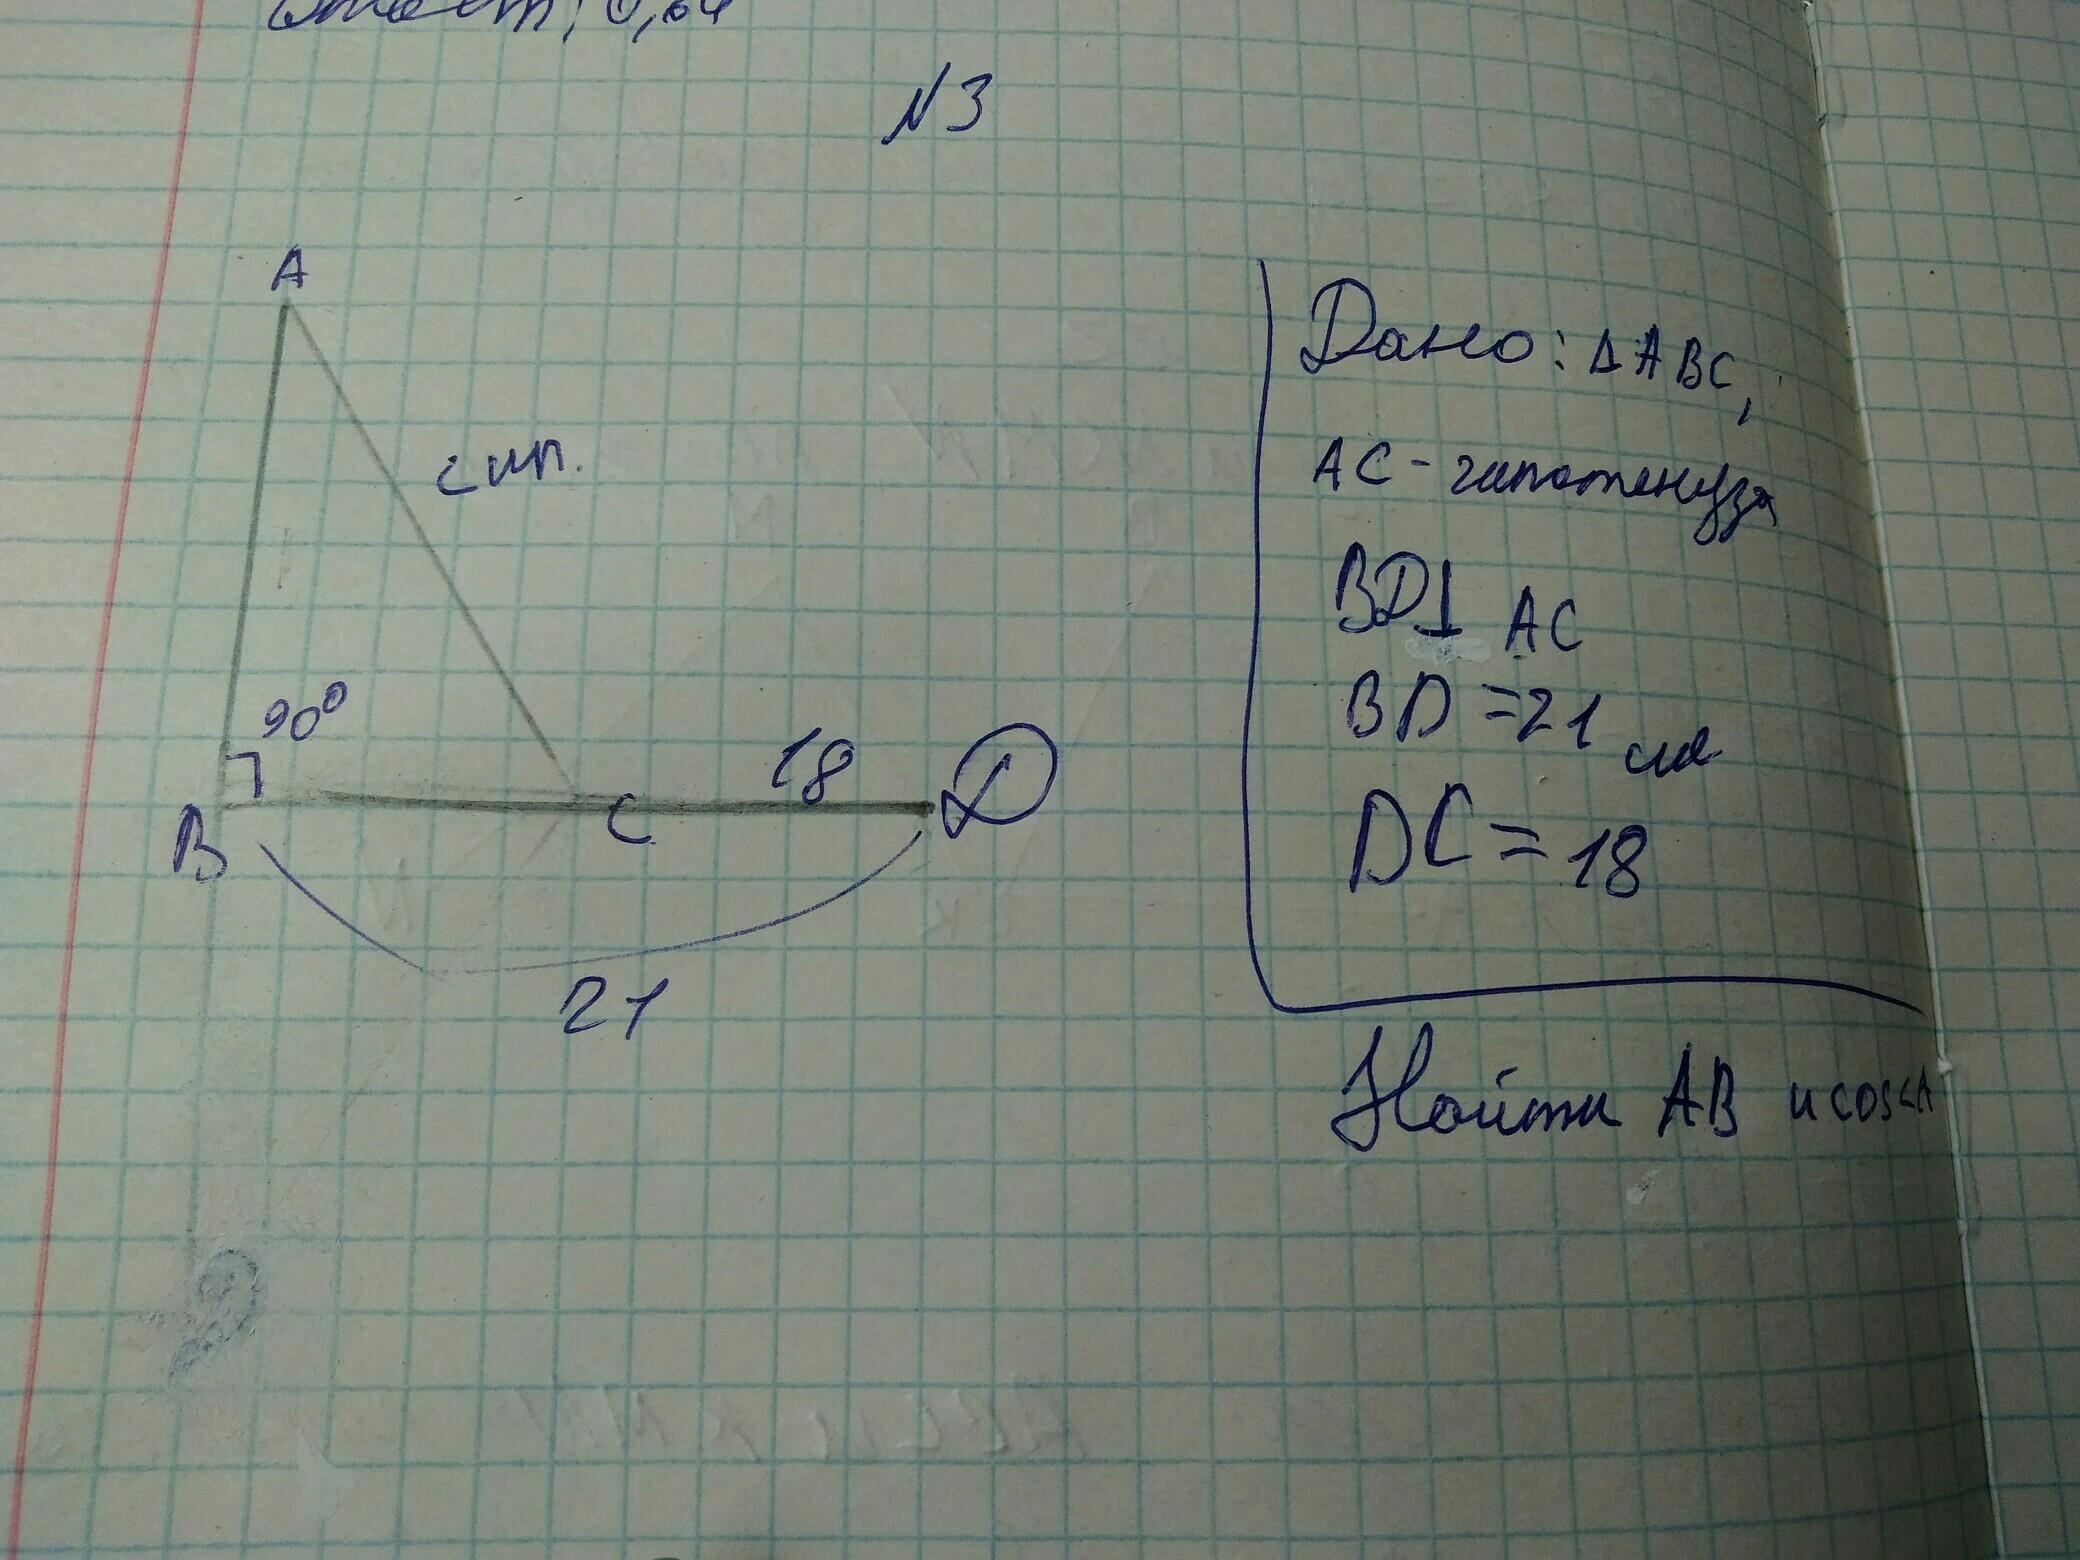 N3
A
гип.
90°
18
B
C
D
21
Дано: ΔABC,
AC - гипотенуза
BD⊥ AC
BD = 21 см
DC = 18
Найти AB и cos<A